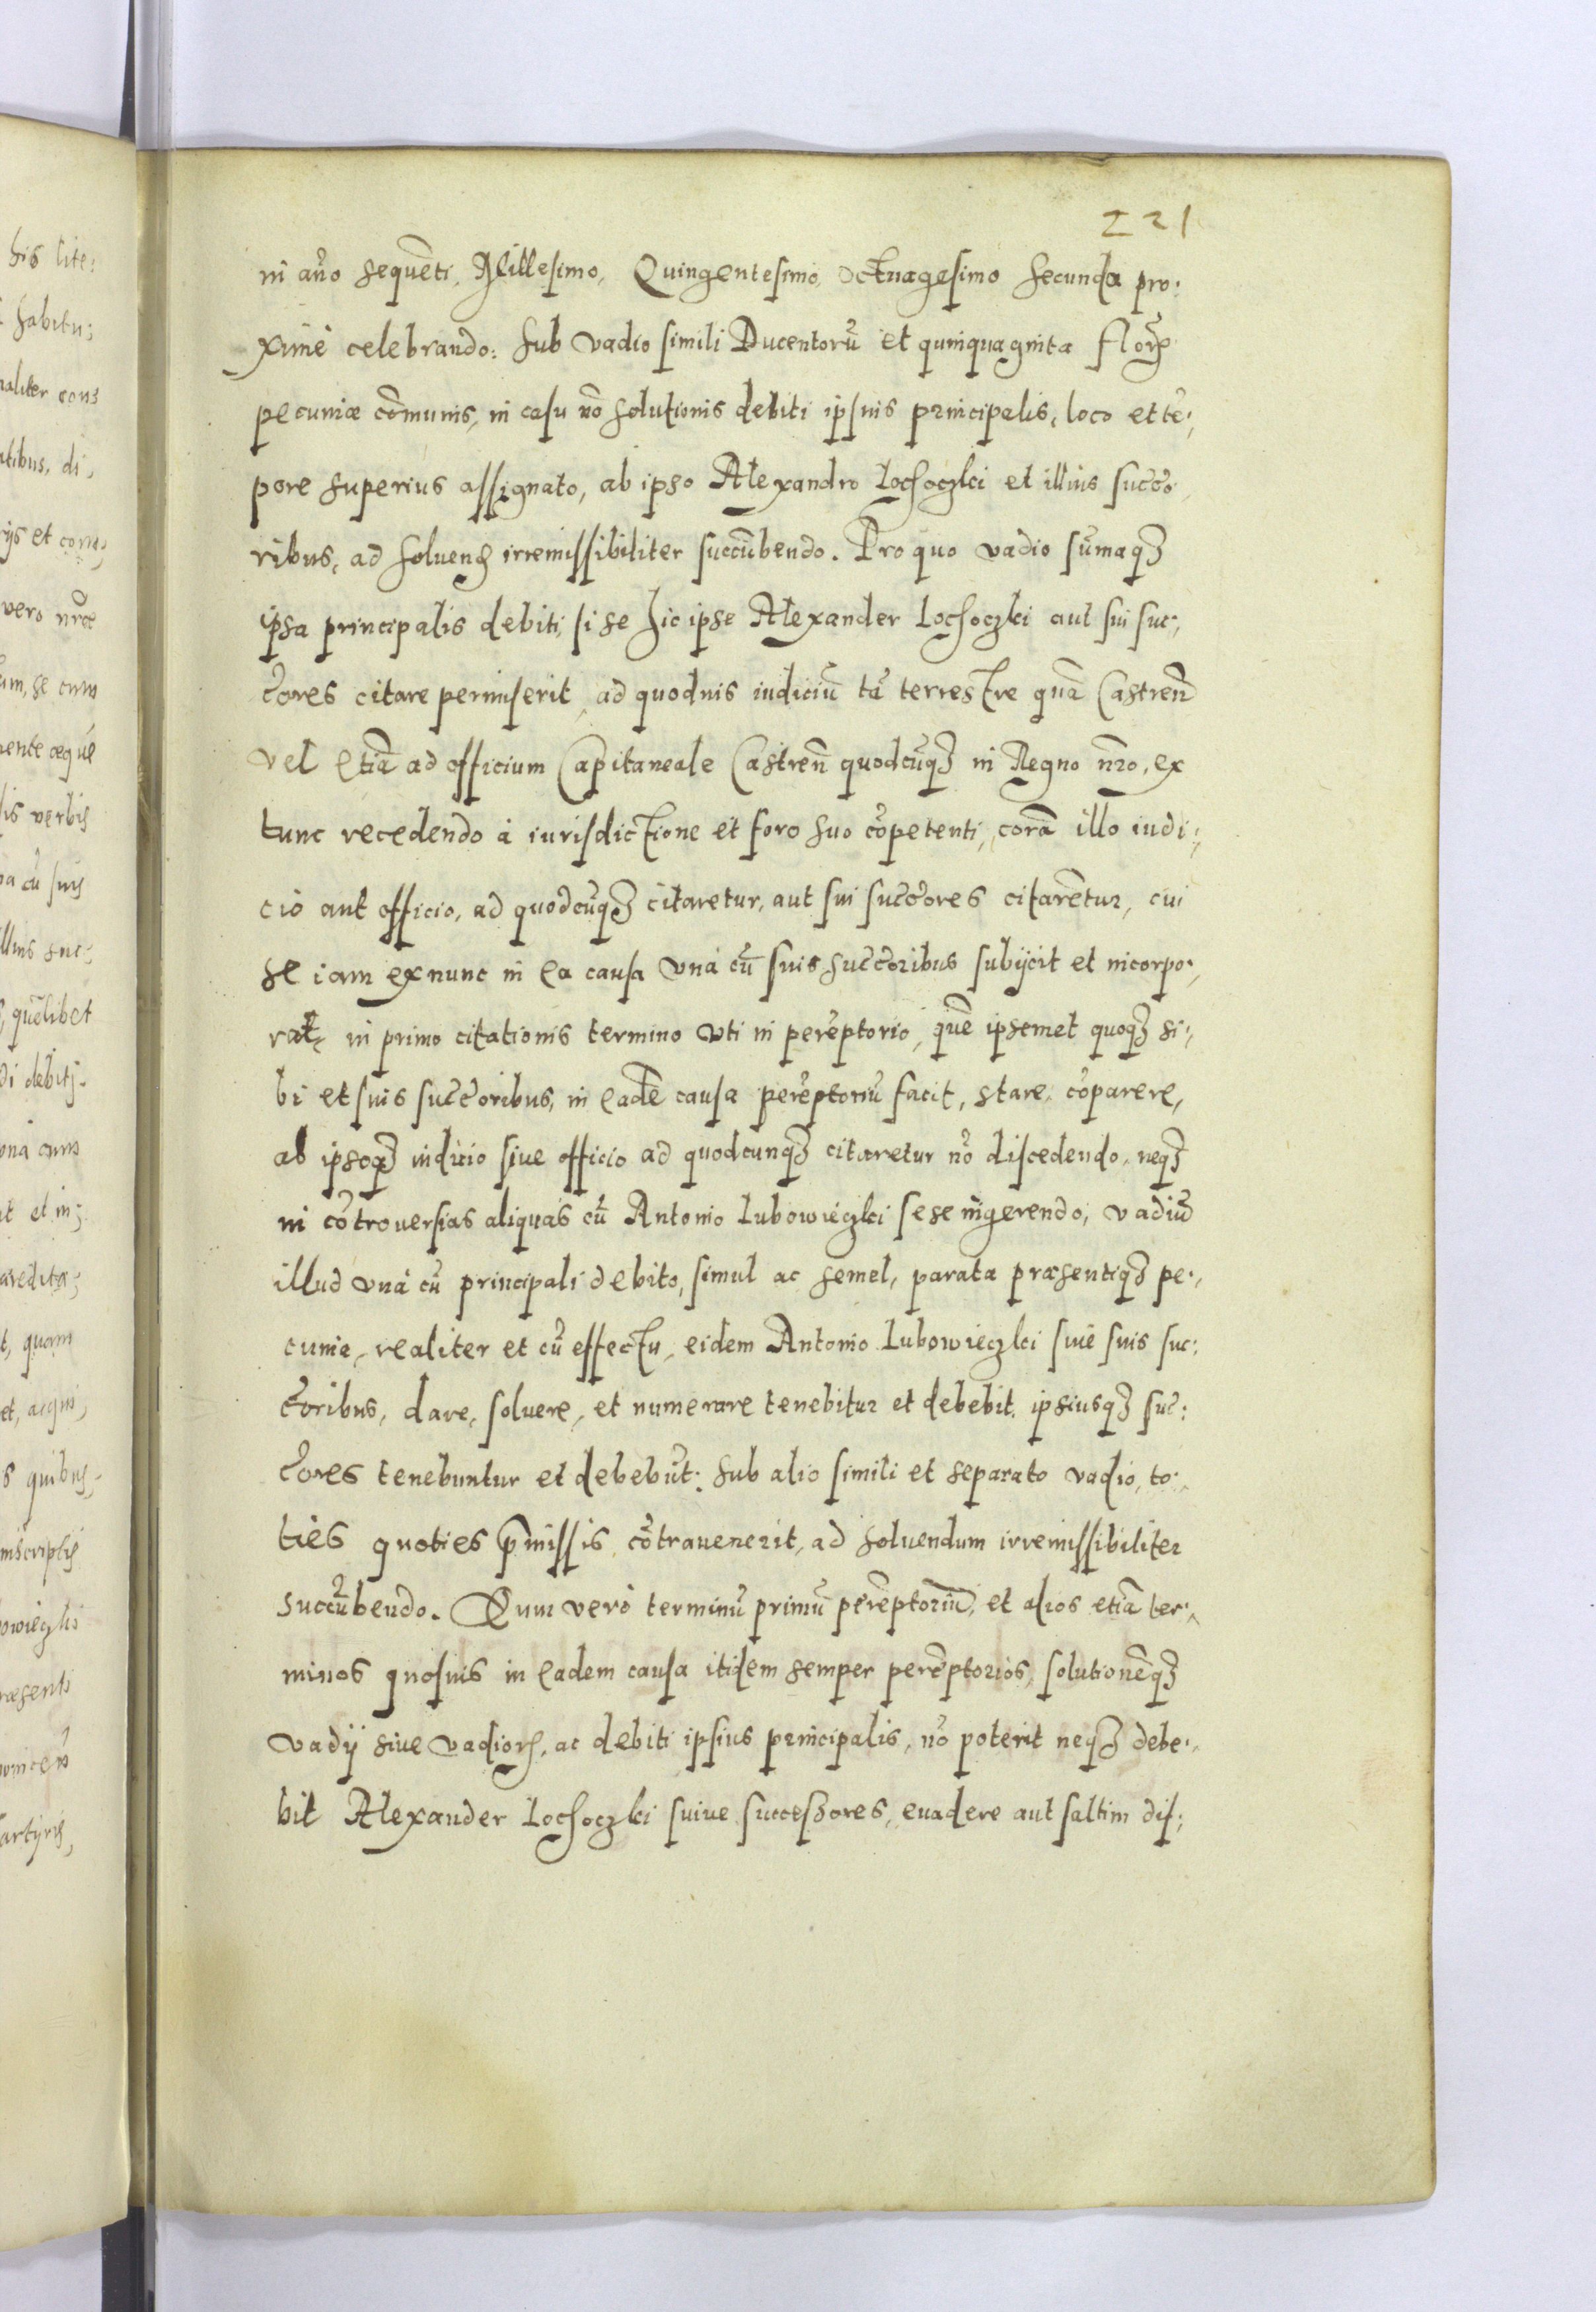 221
in año sequẽti, Millesimo, Quingentesimo, Octuagesimo secunda pro:
ximè celebrando: sub vadio simili Ducentorũ et quinquaginta florꝝ
pecuniæ cõmunis, in casu nõ solutionis debiti ipsius principalis, loco et tẽ:
pore superius assignato, ab ipso Alexandro Lochoczki et illius succõ
ribus, ad soluenꝺ irremissibiliter succũbendo. Pro quo vadio sũmaqꝫ
ipsa principalis debiti, si se hic ipse Alexander Lochoczki aut sui suc:
c̃ores citare permiserit, ad quoduis iudiciũ tã terrestre quã Castreñ
vel etiã ad officium Capitaneale Castreñ quodcũqꝫ in Regno ñro, ex
tunc recedendo à iurisdictione et foro suo cõpetenti, corã illo iudi:
cio aut officio, ad quodcũqꝫ citaretur, aut sui succ̃ores citarẽtur, cui
se iam ex nunc in ea causa vnà cũ suis succ̃oribus subijcit et incorpo:
rat, in primo citationis termino vti in perẽptorio, quẽ ipsemet quoqꝫ si:
bi et suis succ̃oribus, in eadẽ causa perẽptoriũ facit, stare, cõparere,
ab ipsoqꝫ iudicio siue officio ad quodcunqꝫ citaretur nõ discedendo, neqꝫ
in cõtrouersias aliquas cũ Antonio Lubowieczki sese ingerendo, vadiũ
illud vnà cũ principali debito, simul ac semel, parata præsentiqꝫ pe:
cunia, realiter et cũ effectu, eidem Antonio Lubowieczki siue suis suc:
c̃oribus, dare, soluere, et numerare tenebitur et debebit, ipsiusqꝫ suc:
c̃ores tenebuntur et debebũt: sub alio simili et separato vadio, to:
ties quoties p̃missis cõtrauenerit, ad soluendum irremissibiliter
succũbendo. Quum verò terminũ primũ perẽptoriũ, et alios etiã ter:
minos quosuis in eadem causa itidem semper perẽptorios, solutionẽqꝫ
vadij siue vadiorꝝ, ac debiti ipsius principalis, nõ poterit neqꝫ debe:
bit Alexander Lochoczki suiue successores, euadere aut saltim dif: